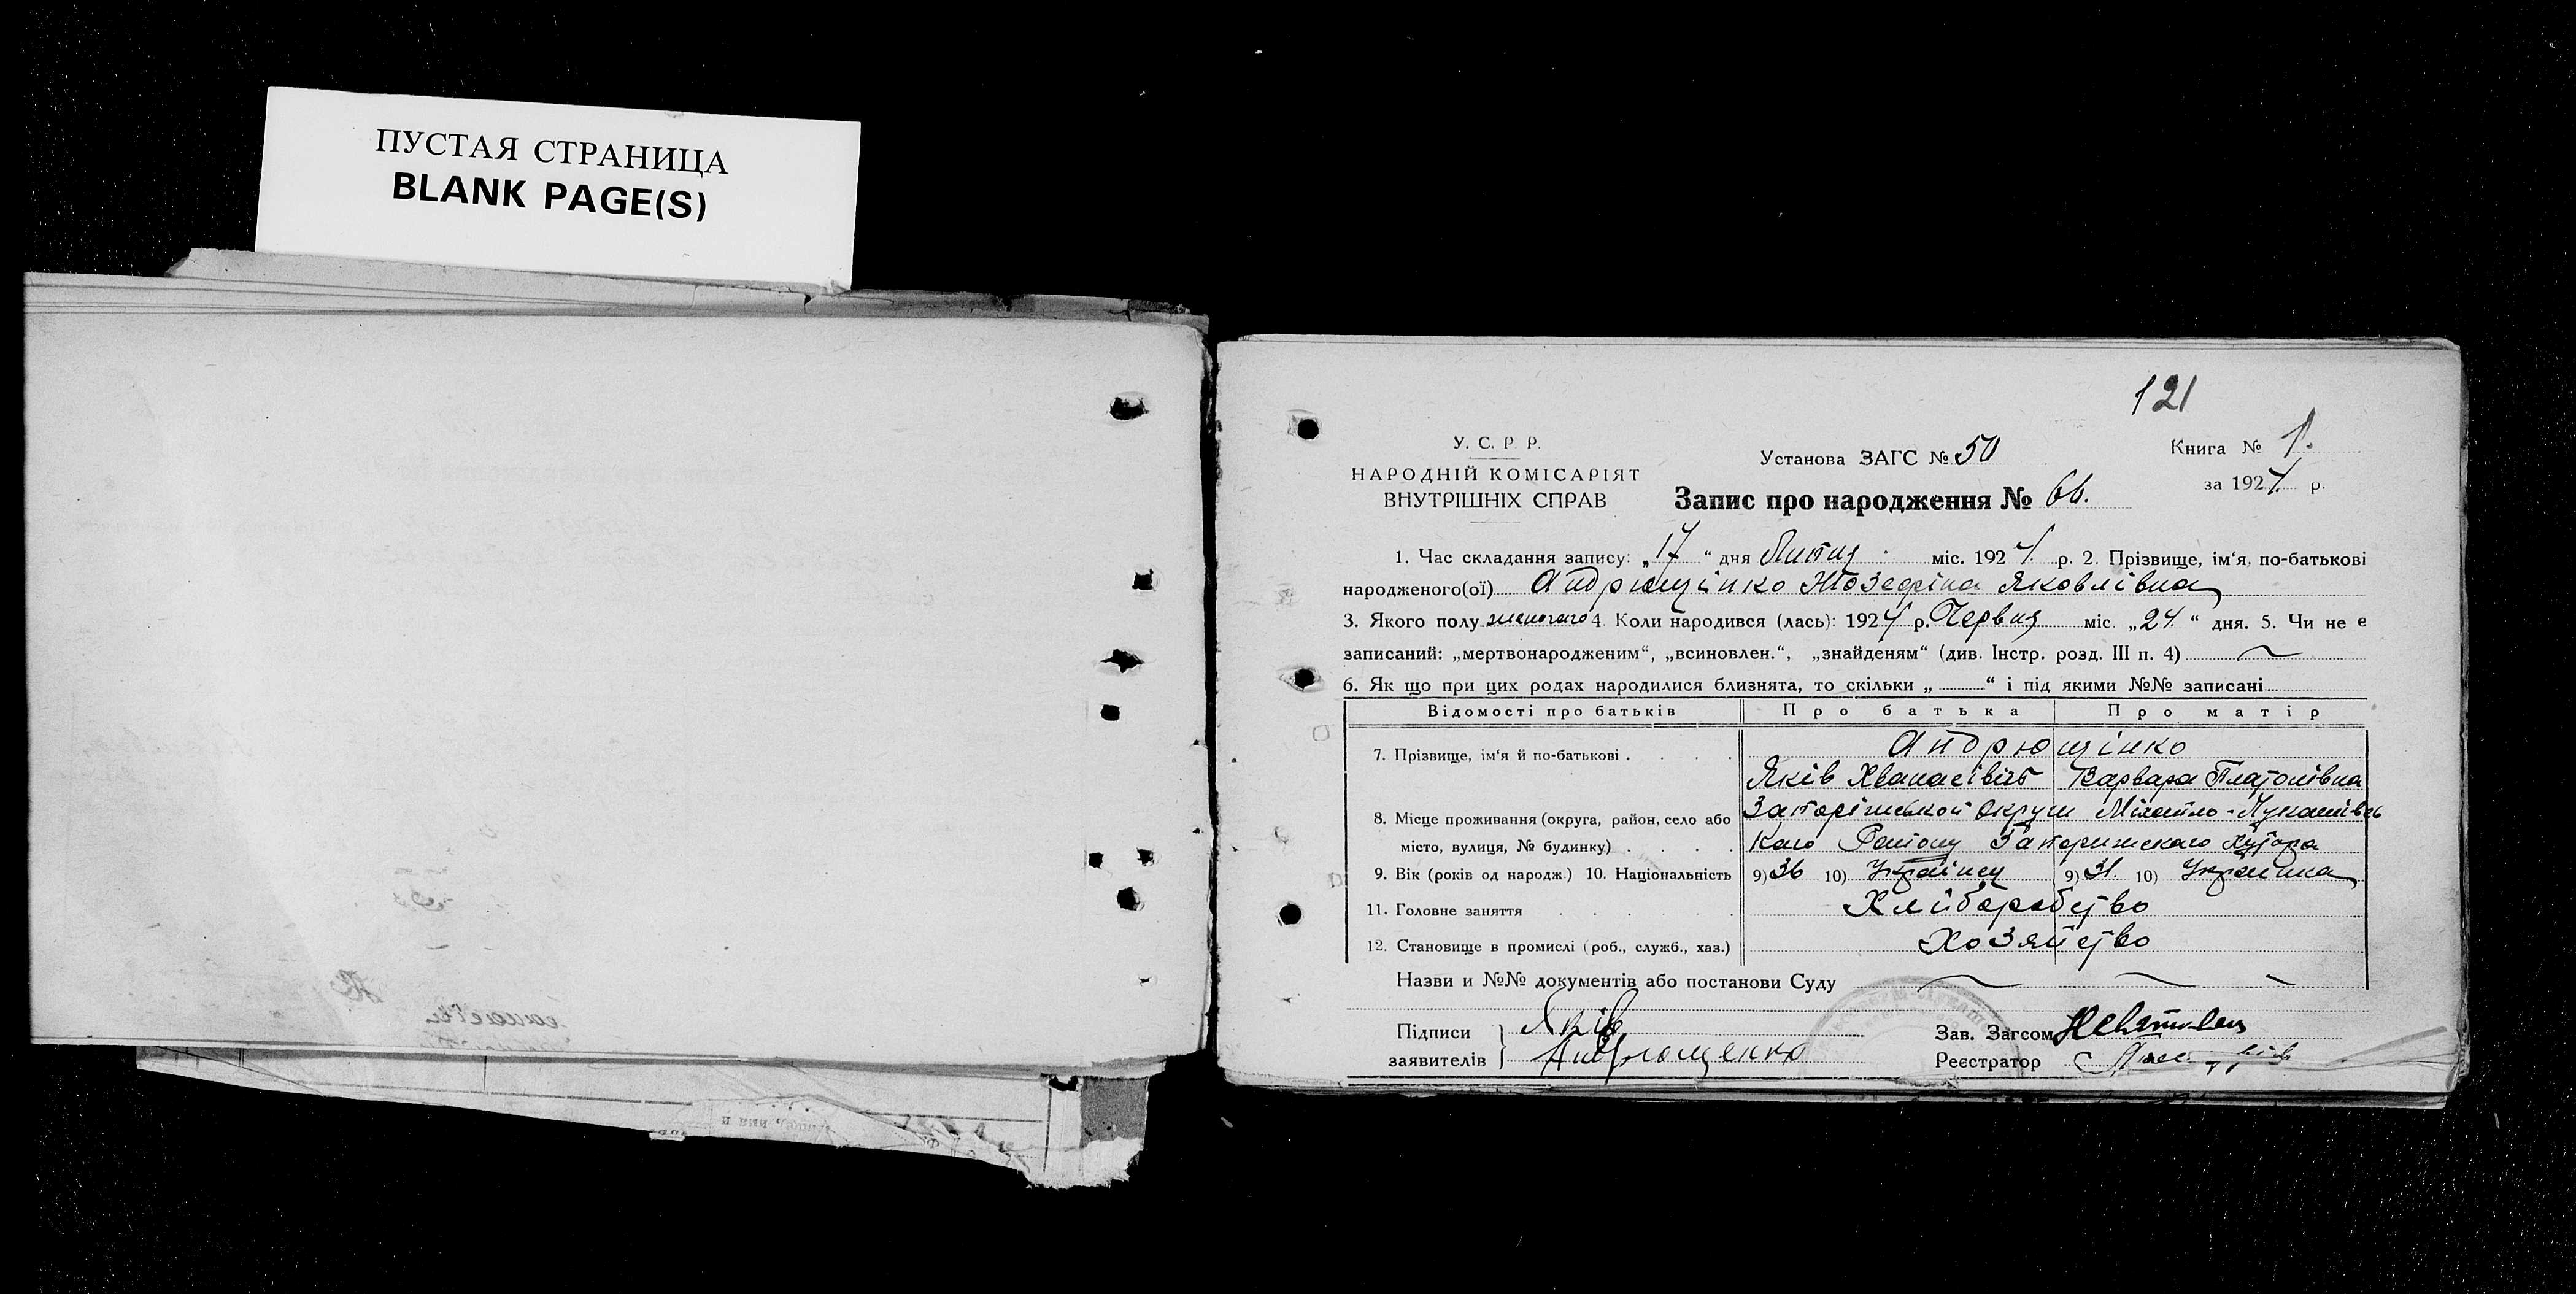 ПУСТАЯ СТРАНИЦА
BLANK PAGE(S)
121
У. С. Р. Р.
НАРОДНІЙ КОМІСАРІЯТ
ВНУТРІШНІХ СПРАВ
Установа ЗАГС № 50
Книга № 1.
за 1924 р.
Запис про народження № 66.
1. Час складання запису: „17“ дня Липня міс. 1924 р. 2. Прізвище, ім'я, по-батькові
народженого(ої) Андрющінко Жозефіна Яковлівна
3. Якого полу женского 4. Коли народився (лась): 1924 р. Червня міс. „24“ дня. 5. Чи не є
записаний: „мертвонародженим“, „всиновлен.“, „знайденям“ (див. Інстр. розд. III п. 4)
6. Як що при цих родах народилися близнята, то скільки „ “ і під якими №№ записані
Відомості про батьків Про батька Про матір
7. Прізвище, ім'я й по-батькові Андрющінко
Яків Хванасівіч Варвара Платонівна
8. Місце проживання (округа, район, село або Запоріжськой округи Міхайло-Лукашівсь
місто, вулиця, № будинку) Кого Району Запорижского хутора
9. Вік (років од народж.) 10. Національність 9) 36 10) Українец 9) 31. 10) Українка
11. Головне заняття Хлиборобство
12. Становище в промислі (роб., служб., хаз.) Хозяйство
Назви и №№ документів або постанови Суду
Підписи Яків
заявителів Андрющенко
Зав. Загсом
Реєстратор